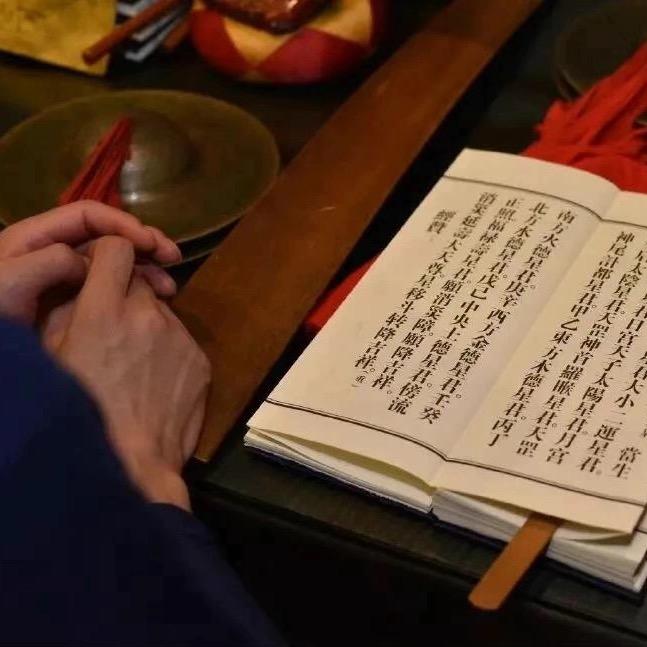 當生
君大小二運星君。
君日宮天子太陽星君。月宮
太陰星君。天罡神首羅睺星君。天罡
神尾計都星君。甲乙東方木德星君。丙丁
南方火德星君。庚辛西方金德星君。壬癸
北方水德星君。戊己中央土德星君。傍流
正照福祿壽星君。願消災障。願降吉祥。
消災延壽大天尊。星移斗转降吉祥。(重)